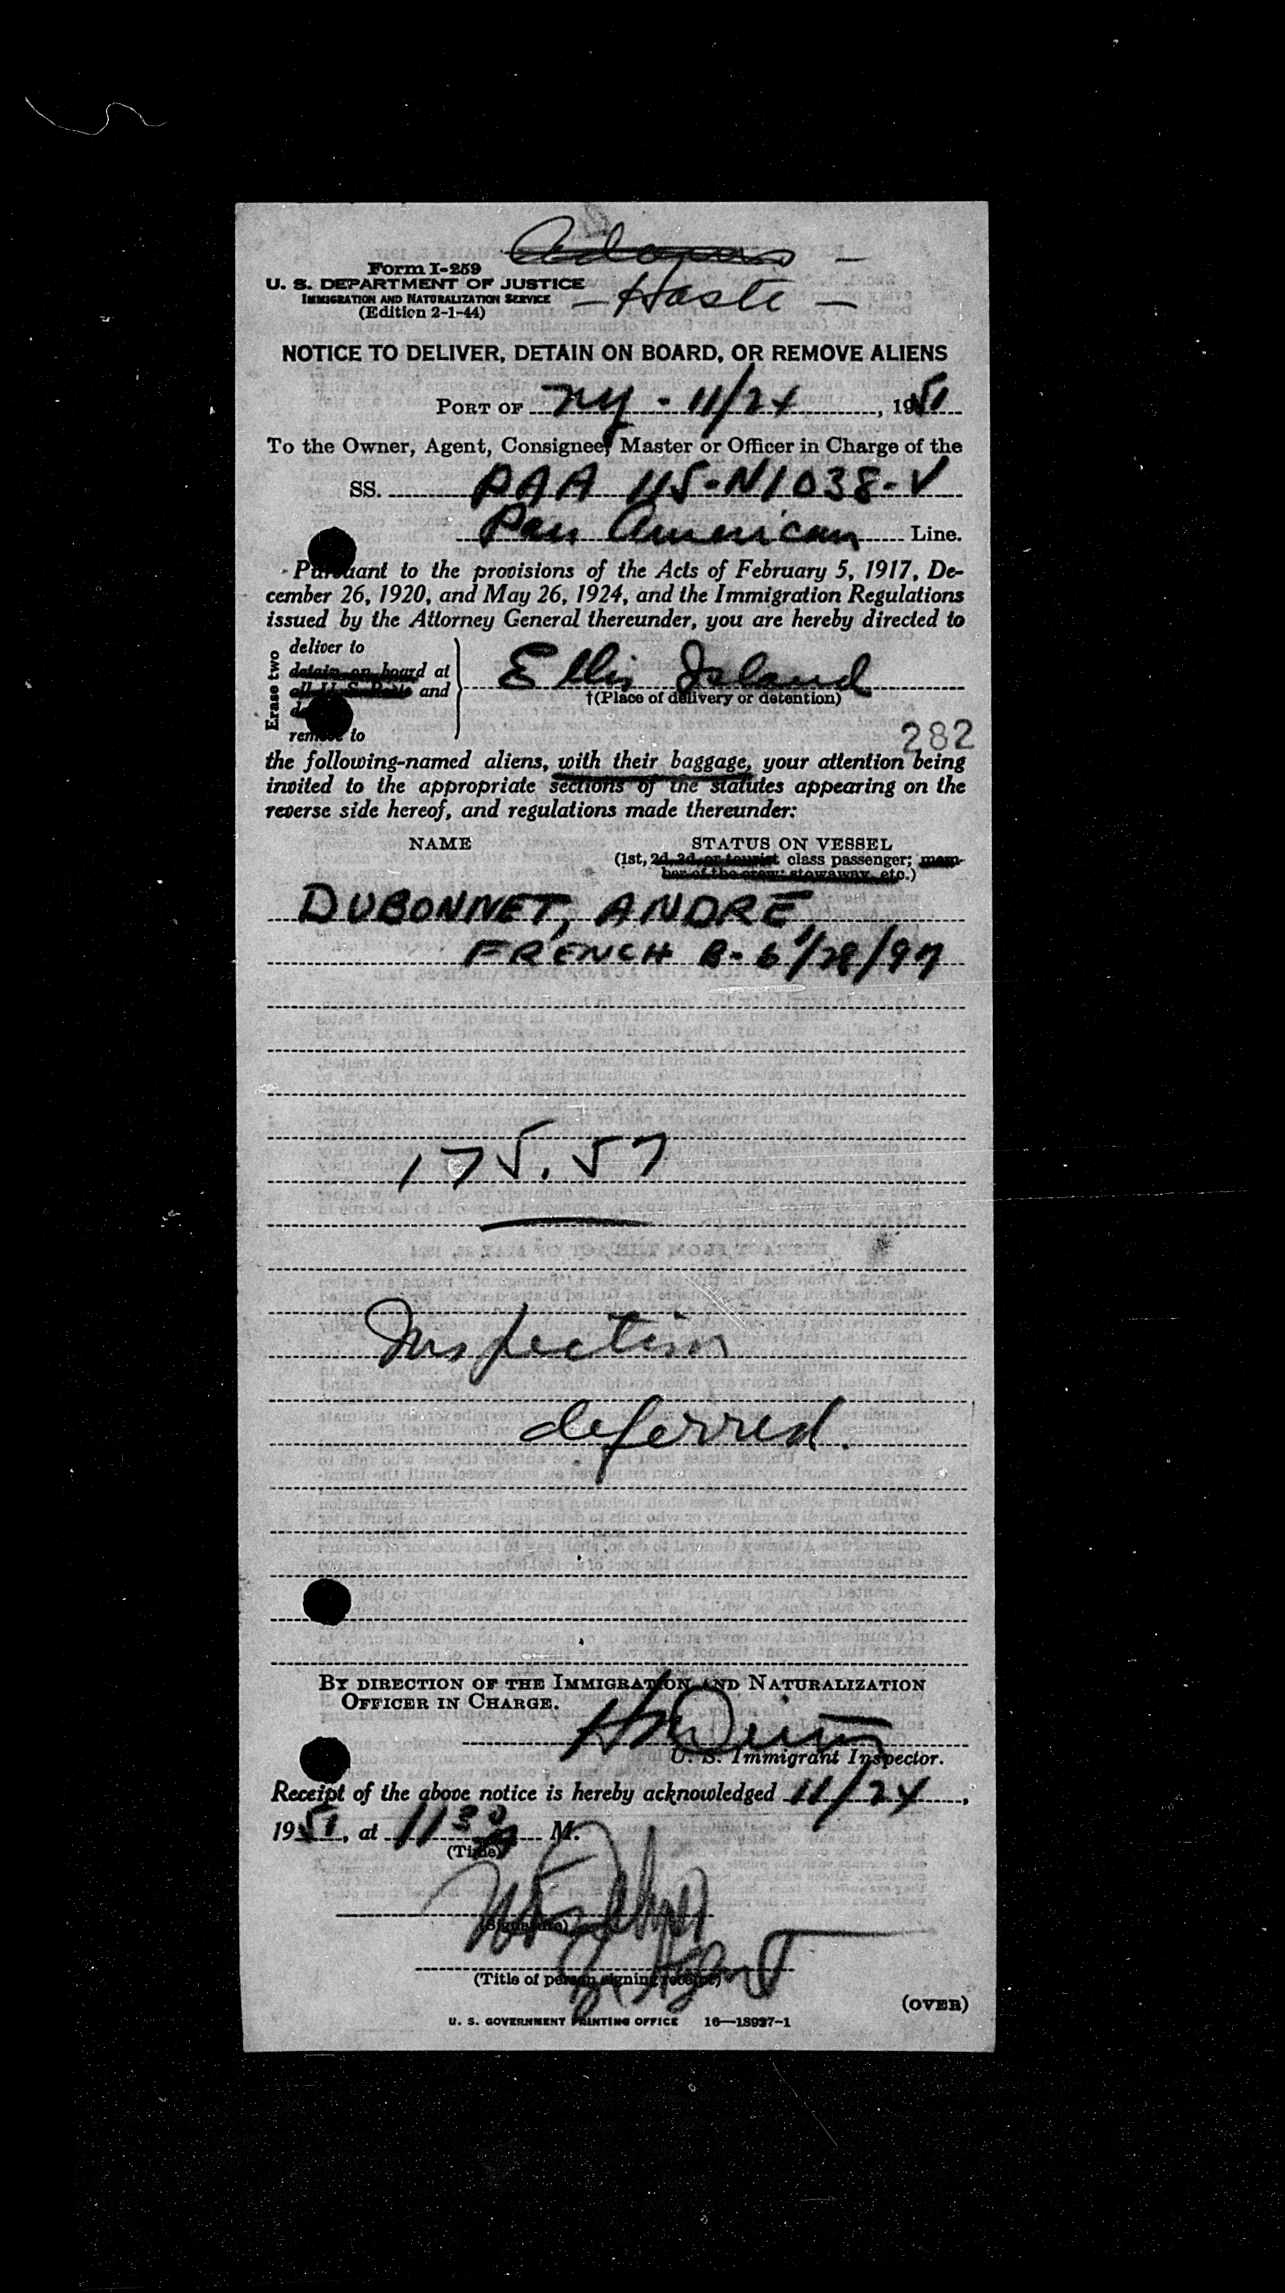 Adams —
Form I-259
U. S. DEPARTMENT OF JUSTICE
IMMIGRATION AND NATURALIZATION SERVICE
(Edition 2-1-44)
— Haste —
NOTICE TO DELIVER, DETAIN ON BOARD, OR REMOVE ALIENS
PORT OF NY - 11/24, 1951
To the Owner, Agent, Consignee, Master or Officer in Charge of the
SS. PAA 115-N1038-V
Pan American Line.
Pursuant to the provisions of the Acts of February 5, 1917, De-
cember 26, 1920, and May 26, 1924, and the Immigration Regulations
issued by the Attorney General thereunder, you are hereby directed to
Erase two
deliver to
detain on board at
all U. S. Ports and
remove to
Ellis Island
†(Place of delivery or detention)
282
the following-named aliens, with their baggage, your attention being
invited to the appropriate sections of the statutes appearing on the
reverse side hereof, and regulations made thereunder:
NAME STATUS ON VESSEL
(1st, 2d, 3d, or tourist class passenger; mem-
ber of the crew; stowaway, etc.)
DUBONNET, ANDRÉ
FRENCH B- 6/28/97
175.57
Inspection
deferred.
BY DIRECTION OF THE IMMIGRATION AND NATURALIZATION
OFFICER IN CHARGE.
U. S. Immigrant Inspector.
Receipt of the above notice is hereby acknowledged 11/24,
1951, at 11 30 M.
(Time)
(Signature)
(Title of person signing receipt)
(OVER)
U. S. GOVERNMENT PRINTING OFFICE 16—18927-1